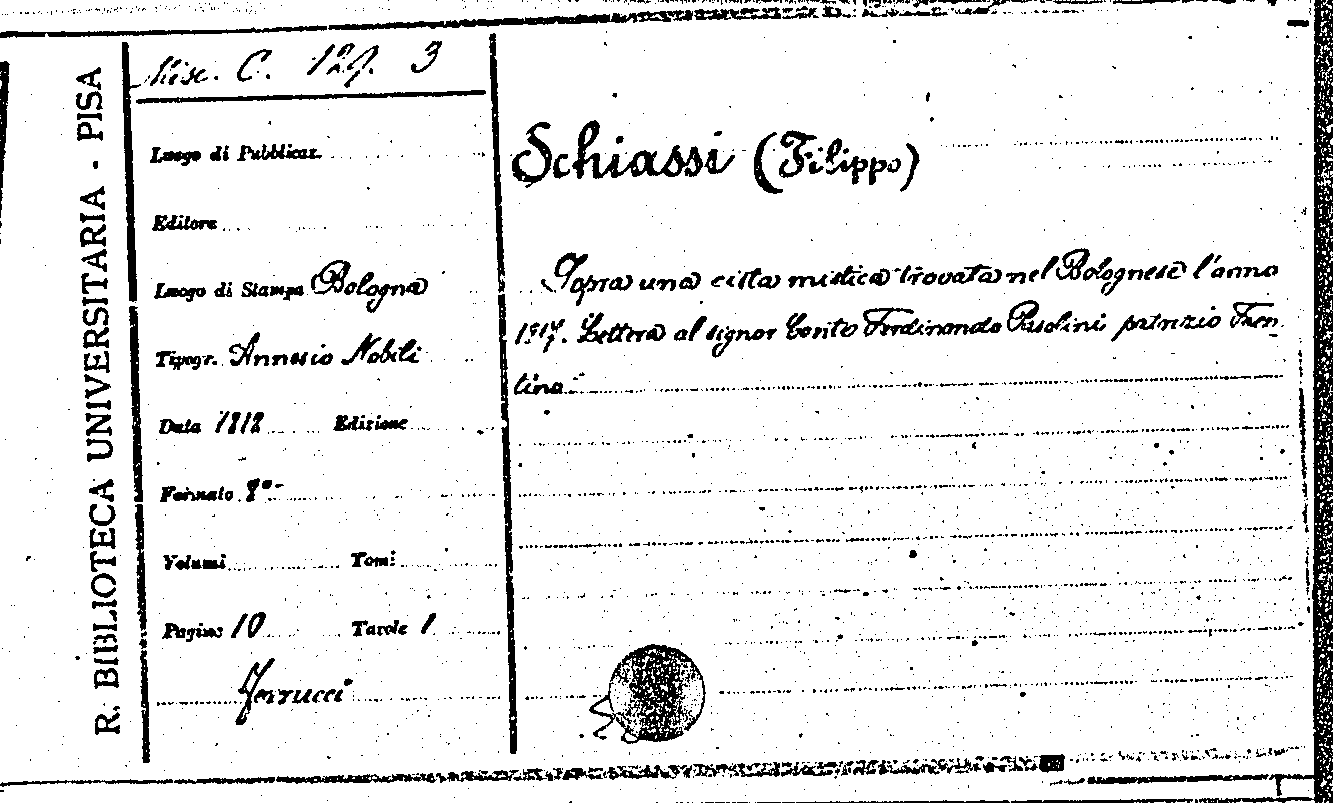 R. BIBLIOTECA UNIVERSITARIA - PISA
Misc. C. 127. 3
Luogo di Pubblicaz.
Editore
Luogo di Stampa Bologna
Tipogr. Annesio Nobili
Data 1818 Edizione
Formato 8°-
Volumi Tomi
Pagine 10 Tavole 1
Ferrucci
Schiassi (Filippo)
Sopra una cista mistica trovata nel Bolognese l'anno
1817. Lettera al signor Conte Ferdinando Pasolini patrizio Faen
tino.-